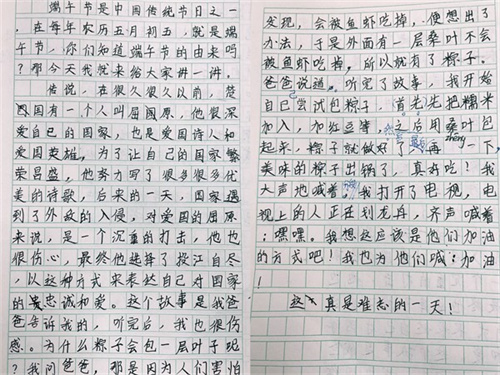 端午节是中国传统节日之一
，在每年农历五月初五，就是端
午节，你们知道端午节的由来吗
？那今天我就来给大家讲一讲。
传说，在很久很久以前，楚
国有一个人叫屈原，他很深
爱自己的国家，也是爱国诗人和
爱国英雄，为了让自己的国家繁
荣昌盛，他努力写了很多很多优
美的诗歌，后来的一天，国家遇
到了外敌的入侵，对爱国的屈原
来说，是一个沉重的打击，他也
很伤心，最终他选择了投江自尽
，以这种方式来表达自己对国家
的忠诚和爱。这个故事是我爸
爸告诉我的，听完后，我也很伤
感。为什么粽子会包一层叶子呢
？我问爸爸，那是因为人们害怕
发现，会被鱼虾吃掉，便想出了
办法，于是外面有一层桑叶不会
被鱼虾吃掉，所以就有了粽子。
爸爸说道。听完了故事，我开始
自己尝试包粽子，首先先把糯米
加入，加红豆等，然后用桑叶包
起来，粽子就做好了，再 zhēng 一下，
美味的粽子出锅了，真好吃！我
大声地喊着，我打开了电视，电
视上的人正在划龙舟，齐声喊着
：嘿嘿。我想这应该是他们加油
的方式吧！我也为他们喊：加油
！
这真是难忘的一天！